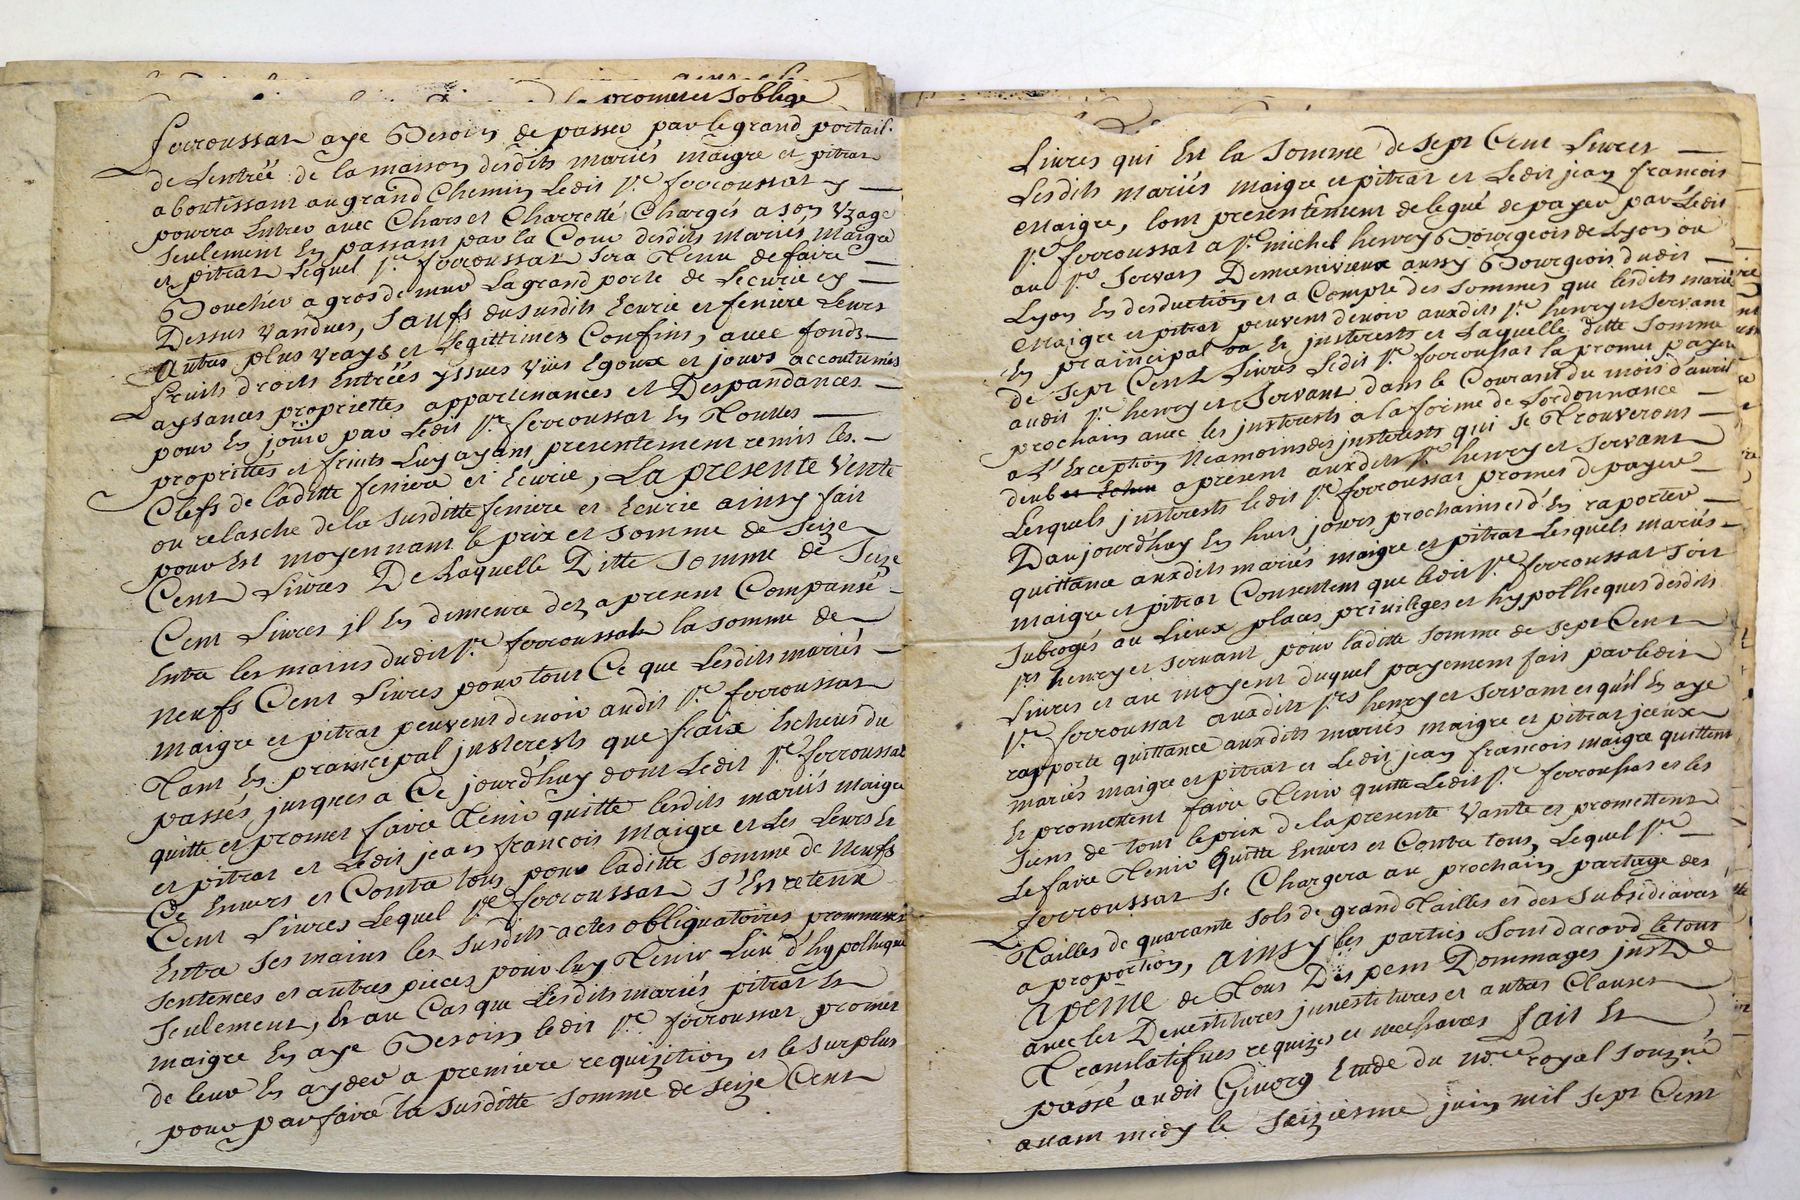 promet et s'oblige
ferroussat aye Besoin de passer par le grand portail
de Lentrée de la maison desdits mariés maigre et pitrat
aboutissant au grand Chemin Ledit Sr. ferroussat y
pourra Entrer avec Chars et Charretté Chargés a son Vzage
seulement En passant par la Cour desdits mariés Maigre
et pitrat Lequel Sr. ferroussat sera Tenu de faire
Boucher a gros de mur La grand porte de Lecurie cy
Dessus Vandues, Saufs du susdits Ecurie et feniere Leurs
Autres plus Vrays et Legittimes Confins, avec fonds
fruits droits Entrées yssues Vuës Egoux et jours accoutumés
aysances propriettes appartenances et Despandances
pour En jouir par Ledit Sr. ferroussat En Touttes
propriettés et fruits Luy ayant presentement remis les
Clefs de laditte feniere et Ecurie, La presente Vente
ou relasche de la susditte feniere et Ecurie ainsy fait
pour Est moyennant le prix et somme de Seize
Cent Livres De Laquelle Ditte Somme de Seize
Cent Livres jl En demeure dez a present Compansé
Entre les mains dudit Sr. ferroussat la somme de
Neufs Cent Livres pour tout Ce que Lesdits mariés
Maigre et pitrat peuvent devoir audit Sr. ferroussat
Tant En prainçipal justerests que fraix Echeus du
passés jusques a Ce jourdhuy dont Ledit Sr. ferroussat
quitte et promet faire Tenir quitte lesdits mariés maigre
et pitrat et Ledit jean françois Maigre et Les Leurs Et
Ce Envers et Contre tous pour laditte somme de Neufs
Cent Livres Lequel Sr. ferroussat S'Est retenu
Entre ses mains les susdits actes obligatoires promesses
sentences et autres pieces pour luy Tenir Lieu d'hypotheque
seulement, Et au Cas que Lesdits mariés pitrat Et
maigre En aye Besoin ledit Sr. ferroussat promet
de leur En ayder a premiere requizition et le surplus
pour parfaire la susditte somme de seize Cent
Livres qui Est la somme de sept Cent Livres
Lesdits mariés Maigre et pitrat et Ledit jean françois
Maigre, lont presentement delegué de payer par Ledit
Sr. ferroussat a Sr. michel henry Bourgeois de Lyon ou
au Sr. Servan Demeinivieux aussy Bourgeois dudit
Lyon En desduction et a Compte des sommes que lesdits mariés
Maigre et pitrat peuvent devoir auxdits Sr. henry et Servant
En prainçipal Et justerests et Laquelle ditte somme
de sept Cent Livres Ledit Sr. ferroussat la promet payer
audit Sr. henry et Servant dans le Courant du mois d'avril
prochain avec les justerests a la forme de Lordonnance
a L'Exception Neamoins des justerests qui se Trouveront
deub a present auxdits Sr. henry et Servant
Lesquels justerests ledit Sr. ferroussat promet de payer
Daujourdhuy En huit jours prochains et d'En raporter
quittance auxdits mariés maigre et pitrat Lesquels mariés
maigre et pitrat Consentent que ledit Sr. ferroussat soit
subrogés au Lieux places privileges et hypotheques desdits
Srs henry et Servant pour laditte somme de sept Cent
Livres et au moyent duquel payement fait par ledit
Sr. ferroussat auxdits Srs henry et Servant et qu'il En aye
rapporte quittance auxdits mariés maigre et pitrat jceux
mariés maigre et pitrat et Ledit jean françois maigre quittent
Et promettent faire Tenir quitte Ledit Sr. ferroussat et les
siens de tout le prix de la presente Vante et promettent
Le faire Tenir Quitte Envers et Contre tous, Lequel Sr.
ferroussat se Chargera au prochain partage des
Tailles de quarante sols de grand Tailles et des subsidiaires
a proportion, ainsy les parties sont dacord le tout
a peine de Tous Dispens Dommages just.
avec les Devestitures jnvestitures et autres Clauses
Translatifves requizes et necessaires fait Et
passé audit Givors Etude du Nore. royal souzné
avant midy le seizieme juin mil sept Cent